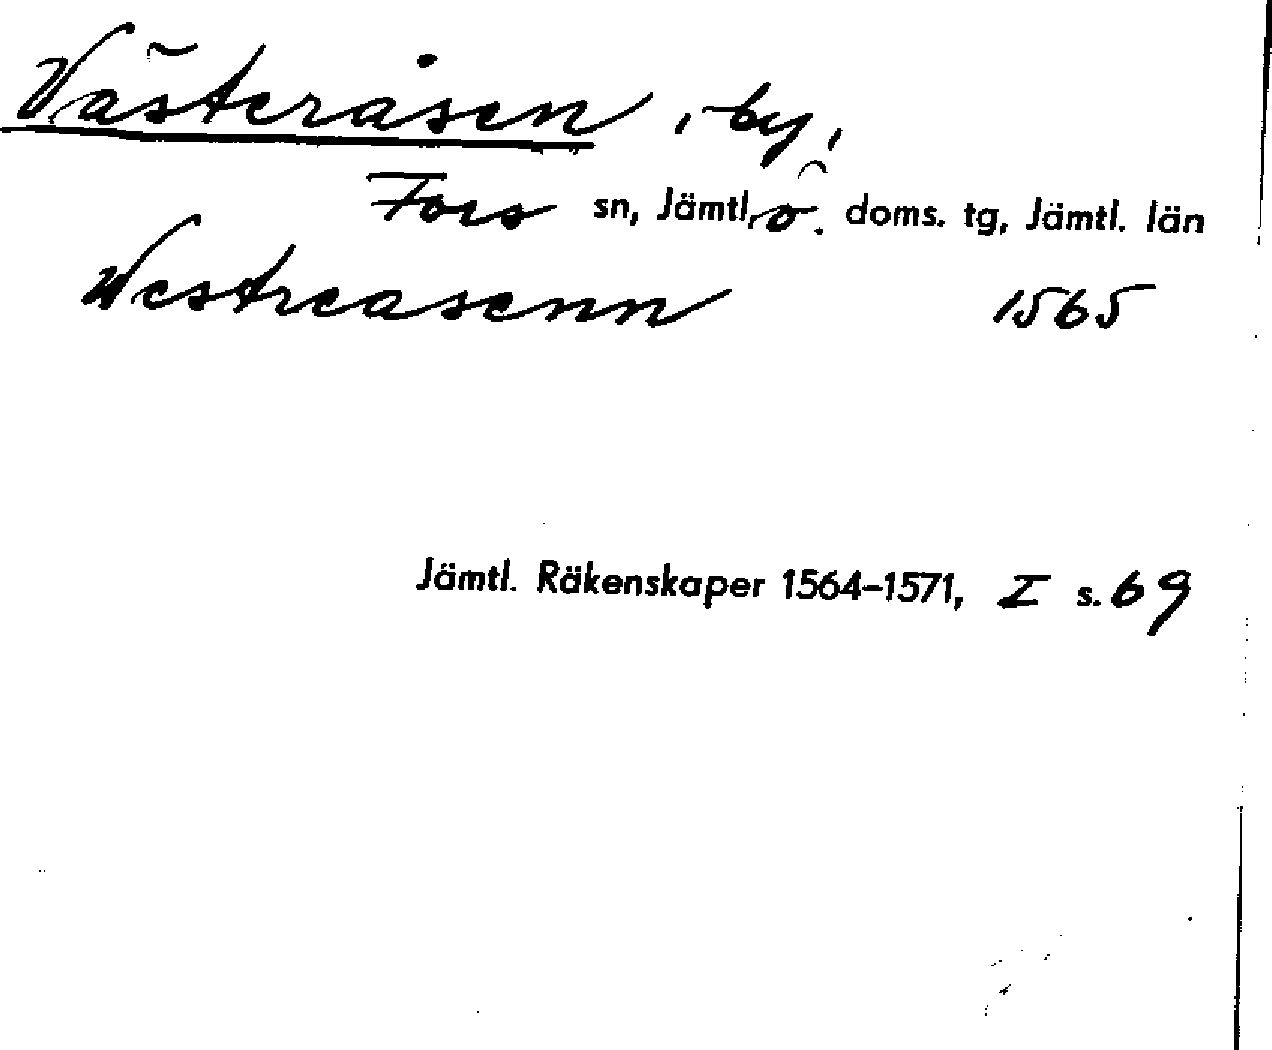 Västeråsen, by,
Fors sn, Jämtl, ö. doms. tg, Jämtl. län
Westreasenn 1565
Jämtl. Räkenskaper 1564–1571, I s. 69